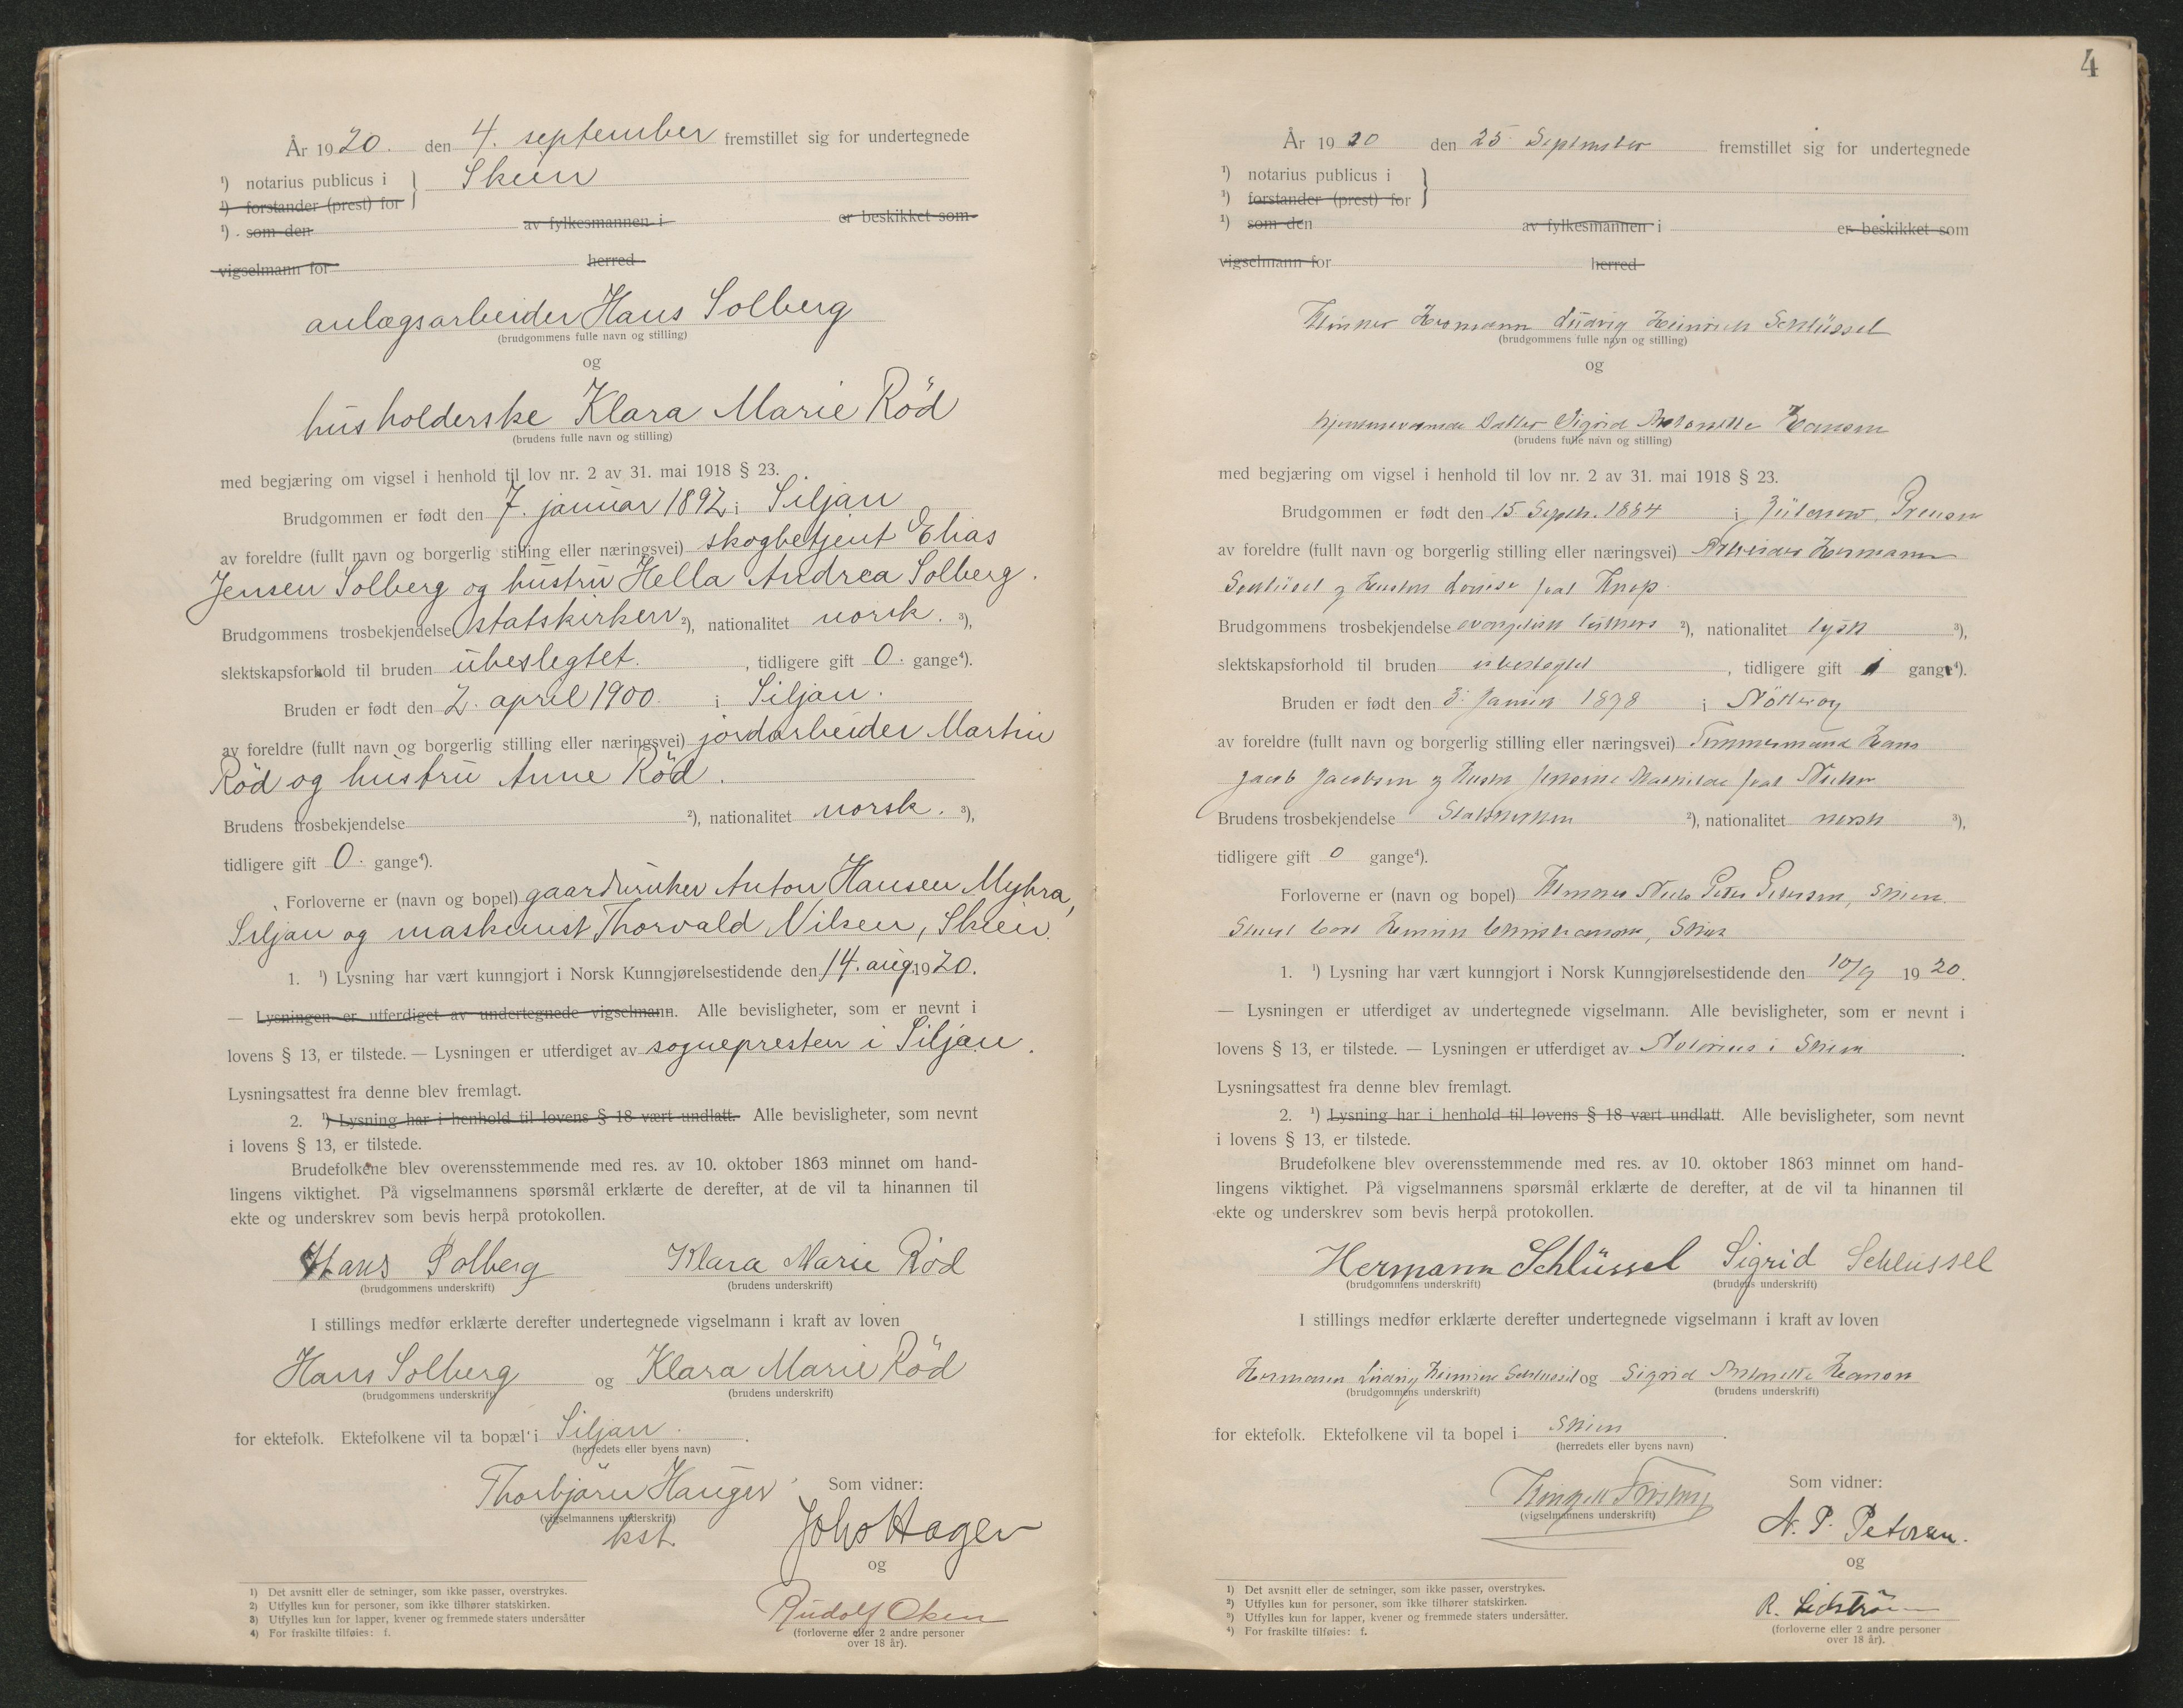 År 1920. den 4. september fremstillet sig for undertegnede
¹) notarius publicus i } Skien
¹) forstander (prest) for
¹) som den av fylkesmannen i er beskikket som
vigselmann for herred
anlægsarbeider Hans Solberg
(brudgommens fulle navn og stilling)
og
husholderske Klara Marie Röd
(brudens fulle navn og stilling)
med begjæring om vigsel i henhold til lov nr. 2 av 31. mai 1918 § 23.
Brudgommen er født den 7. januar 1892 i Siljan
av foreldre (fullt navn og borgerlig stilling eller næringsvei) skogbetjent Elias
Jensen Solberg og hustru Hella Andrea Solberg.
Brudgommens trosbekjendelse statskirken ²), nationalitet norsk. ³),
slektskapsforhold til bruden ubeslegtet. , tidligere gift 0. gange⁴).
Bruden er født den 2. april 1900. i Siljan.
av foreldre (fullt navn og borgerlig stilling eller næringsvei) jordarbeider Martin
Röd og hustru Anne Röd.
Brudens trosbekjendelse ²), nationalitet norsk. ³),
tidligere gift 0. gange⁴).
Forloverne er (navn og bopel) gaardbruker Anton Hansen Myhra,
Siljan og maskinist Thorvald Nilsen, Skien.
1. ¹) Lysning har vært kunngjort i Norsk Kunngjørelsestidende den 14. aug. 1920.
— Lysningen er utferdiget av undertegnede vigselmann. Alle bevisligheter, som er nevnt i
lovens § 13, er tilstede. — Lysningen er utferdiget av sognepresten i Siljan.
Lysningsattest fra denne blev fremlagt.
2. ¹) Lysning har i henhold til lovens § 18 vært undlatt. Alle bevisligheter, som nevnt
i lovens § 13, er tilstede.
Brudefolkene blev overensstemmende med res. av 10. oktober 1863 minnet om hand-
lingens viktighet. På vigselmannens spørsmål erklærte de derefter, at de vil ta hinannen til
ekte og underskrev som bevis herpå protokollen.
Hans Solberg Klara Marie Röd
(brudgommens underskrift) (brudens underskrift)
I stillings medfør erklærte derefter undertegnede vigselmann i kraft av loven
Hans Solberg og Klara Marie Röd
(brudgommens underskrift) (brudens underskrift)
for ektefolk. Ektefolkene vil ta bopæl i Siljan.
(herredets eller byens navn)
Thorbjørn Hauger Som vidner:
(vigselmannens underskrift)
kst. Johs Hagen
og
Rudolf Olsen
(forloverne eller 2 andre personer
over 18 år).
1) Det avsnitt eller de setninger, som ikke passer, overstrykes.
2) Utfylles kun for personer, som ikke tilhører statskirken.
3) Utfylles kun for lapper, kvener og fremmede staters undersåtter
4) For fraskilte tilføies: f.
4
År 1920 den 25 September fremstillet sig for undertegnede
¹) notarius publicus i }
¹) forstander (prest) for
¹) som den av fylkesmannen i er beskikket som
vigselmann for herred
Hermann Ludvig Heinrich Schlüssel
(brudgommens fulle navn og stilling)
og
hjemmeværende Datter Sigrid Antonette Hansen
(brudens fulle navn og stilling)
med begjæring om vigsel i henhold til lov nr. 2 av 31. mai 1918 § 23.
Brudgommen er født den 15 Septbr. 1884 i Preusen
av foreldre (fullt navn og borgerlig stilling eller næringsvei) Arbeider Hermann
Schlüssel og Hustru Louise født Knop
Brudgommens trosbekjendelse evangelisk luthersk ²), nationalitet tysk ³),
slektskapsforhold til bruden ubeslegtet , tidligere gift 1 gange⁴).
Bruden er født den 3. Januar 1898 i Nötterøy
av foreldre (fullt navn og borgerlig stilling eller næringsvei) Tømmermand Hans
Jacob Jacobsen og Hustru Mathilde født Nielsen
Brudens trosbekjendelse Statskirken ²), nationalitet norsk ³),
tidligere gift 0 gange⁴).
Forloverne er (navn og bopel) Niels Peter Petersen, Skien.
Carl Christiansen, Skien
1. ¹) Lysning har vært kunngjort i Norsk Kunngjørelsestidende den 10/9 1920.
— Lysningen er utferdiget av undertegnede vigselmann. Alle bevisligheter, som er nevnt i
lovens § 13, er tilstede. — Lysningen er utferdiget av Notarius i Skien.
Lysningsattest fra denne blev fremlagt.
2. ¹) Lysning har i henhold til lovens § 18 vært undlatt. Alle bevisligheter, som nevnt
i lovens § 13, er tilstede.
Brudefolkene blev overensstemmende med res. av 10. oktober 1863 minnet om hand-
lingens viktighet. På vigselmannens spørsmål erklærte de derefter, at de vil ta hinannen til
ekte og underskrev som bevis herpå protokollen.
Hermann Schlüssel Sigrid Schlüssel
(brudgommens underskrift) (brudens underskrift)
I stillings medfør erklærte derefter undertegnede vigselmann i kraft av loven
Hermann Ludvig Heinrich Schlüssel og Sigrid Antonette Hansen
(brudgommens underskrift) (brudens underskrift)
for ektefolk. Ektefolkene vil ta bopel i Skien.
(herredets eller byens navn)
Som vidner:
(vigselmannens underskrift)
N. P. Petersen.
og
R. Lidström
(forloverne eller 2 andre personer
over 18 år).
1) Det avsnitt eller de setninger, som ikke passer, overstrykes.
2) Utfylles kun for personer, som ikke tilhører statskirken.
3) Utfylles kun for lapper, kvener og fremmede staters undersåtter.
4) For fraskilte tilføies: f.